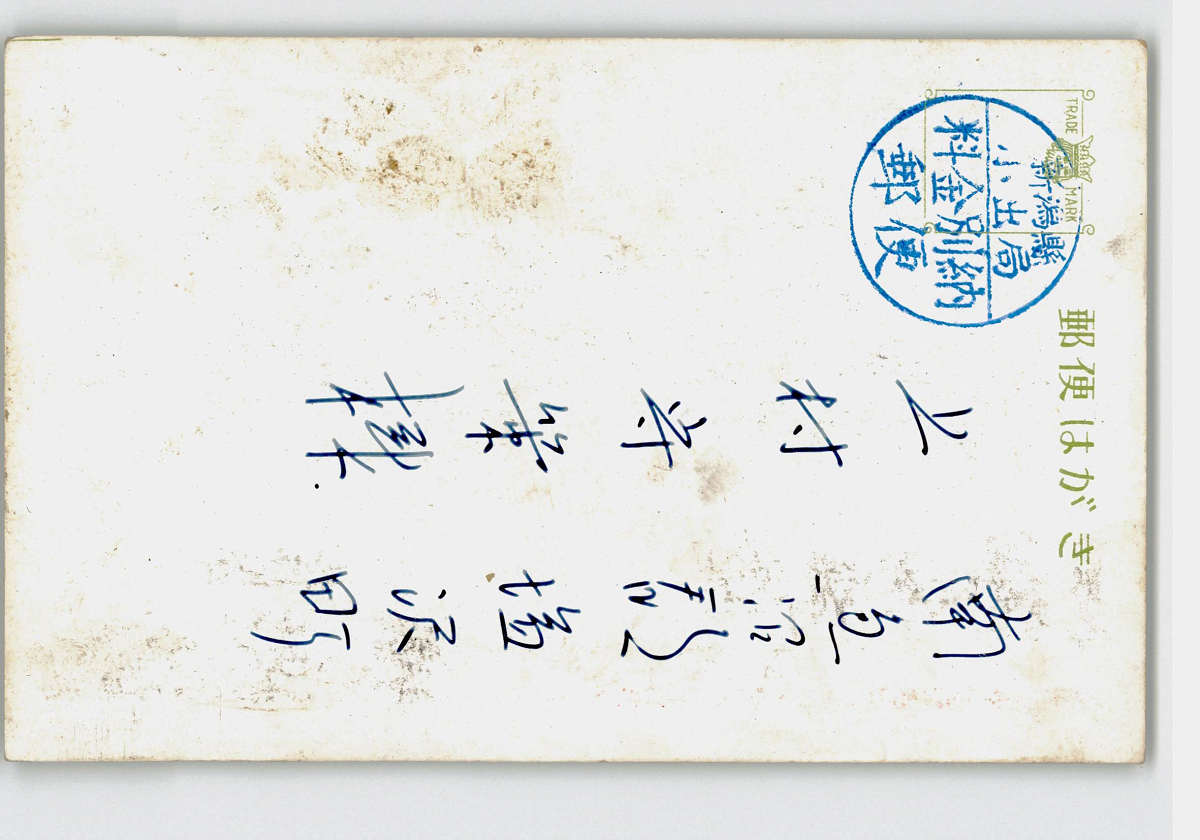 郵便はがき
TRADE MARK
新潟縣
小出局
料金別納
郵便
南魚沼郡塩沢町
上村 様